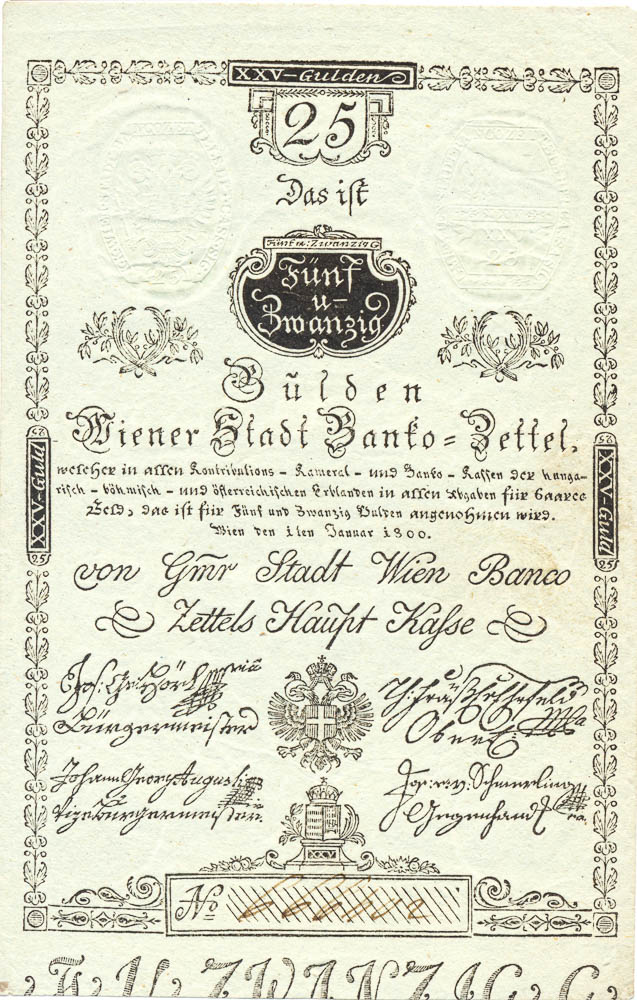 XXV-Gulden
25
Das ist
Fünf u: Zwanzig G
Fünf
u-
Zwanzig
Gulden
Wiener Stadt Banko-Zettel,
welcher in allen Kontributions - Kameral - und Banko - Kassen der hunga-
risch - böhmisch - und österreichischen Erblanden in allen Abgaben für baares
Geld, das ist für Fünf und Zwanzig Gulden angenohmen wird.
Wien den 1ten Januar 1800.
25
XXV-Guld
25
25
XXV-Guld
25
von Gmr Stadt Wien Banco
Zettels Haupt Kasse
Jos: Hörl
Bürgermeister
Johann Georg August:
Vize Bürgermeister
Oberst:
Jos: v: Schmerling
Gegenhand
XXV
No
F U ZWANZIG G